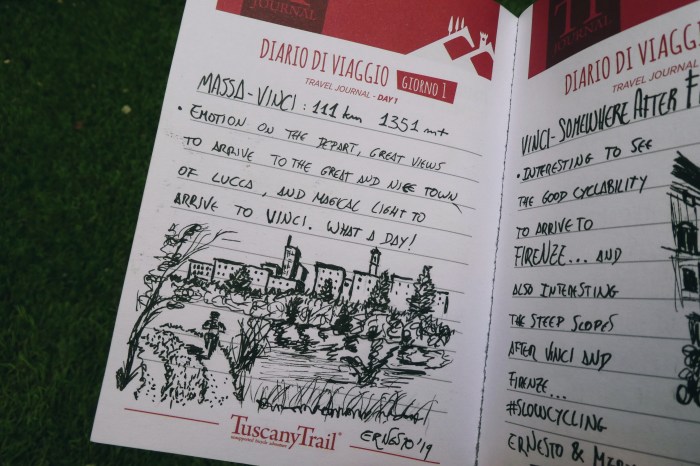 JOURNAL
DIARIO DI VIAGGIO GIORNO 1
TRAVEL JOURNAL - DAY 1
MASSA - VINCI : 111 km 1351 mt
• EMOTION ON THE DEPART, GREAT VIEWS
TO ARRIVE TO THE GREAT AND NICE TOWN
OF LUCCA, AND MAGICAL LIGHT TO
ARRIVE TO VINCI. WHAT A DAY!
TuscanyTrail®
ERNESTO '19
JOURNAL
DIARIO DI VIAGG
TRAVEL JOURNAL
VINCI - SOMEWHERE AFTER F
• INTERESTING TO SEE
THE GOOD CYCLABILITY
TO ARRIVE TO
FIRENZE... AND
ALSO INTERESTING
THE STEEP SLOPES
AFTER VINCI AND
FIRENZE...
#SLOWCYCLING
ERNESTO &